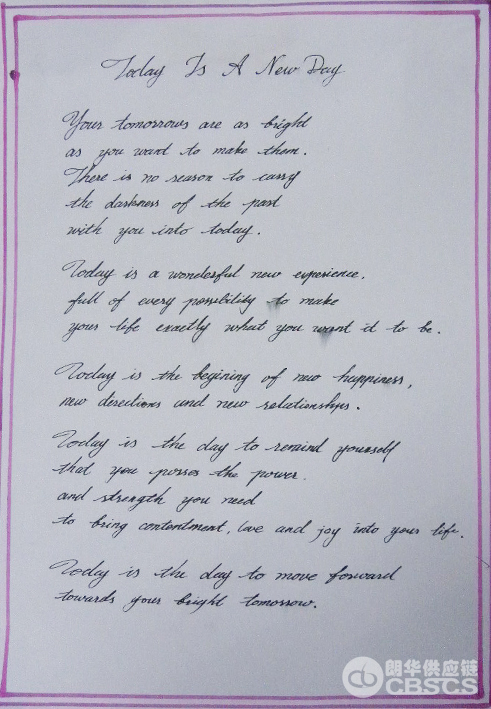 Today Is A New Day
Your tomorrows are as bright
as you want to make them.
There is no reason to carry
the darkness of the past
with you into today.
Today is a wonderful new experience.
full of every possibility to make
your life exactly what you want it to be.
Today is the begining of new happiness,
new directions and new relationships.
Today is the day to remind yourself
that you posses the power.
and strength you need
to bring contentment, love and joy into your life.
Today is the day to move forward
towards your bright tomorrow.
朗华供应链
CBSCS